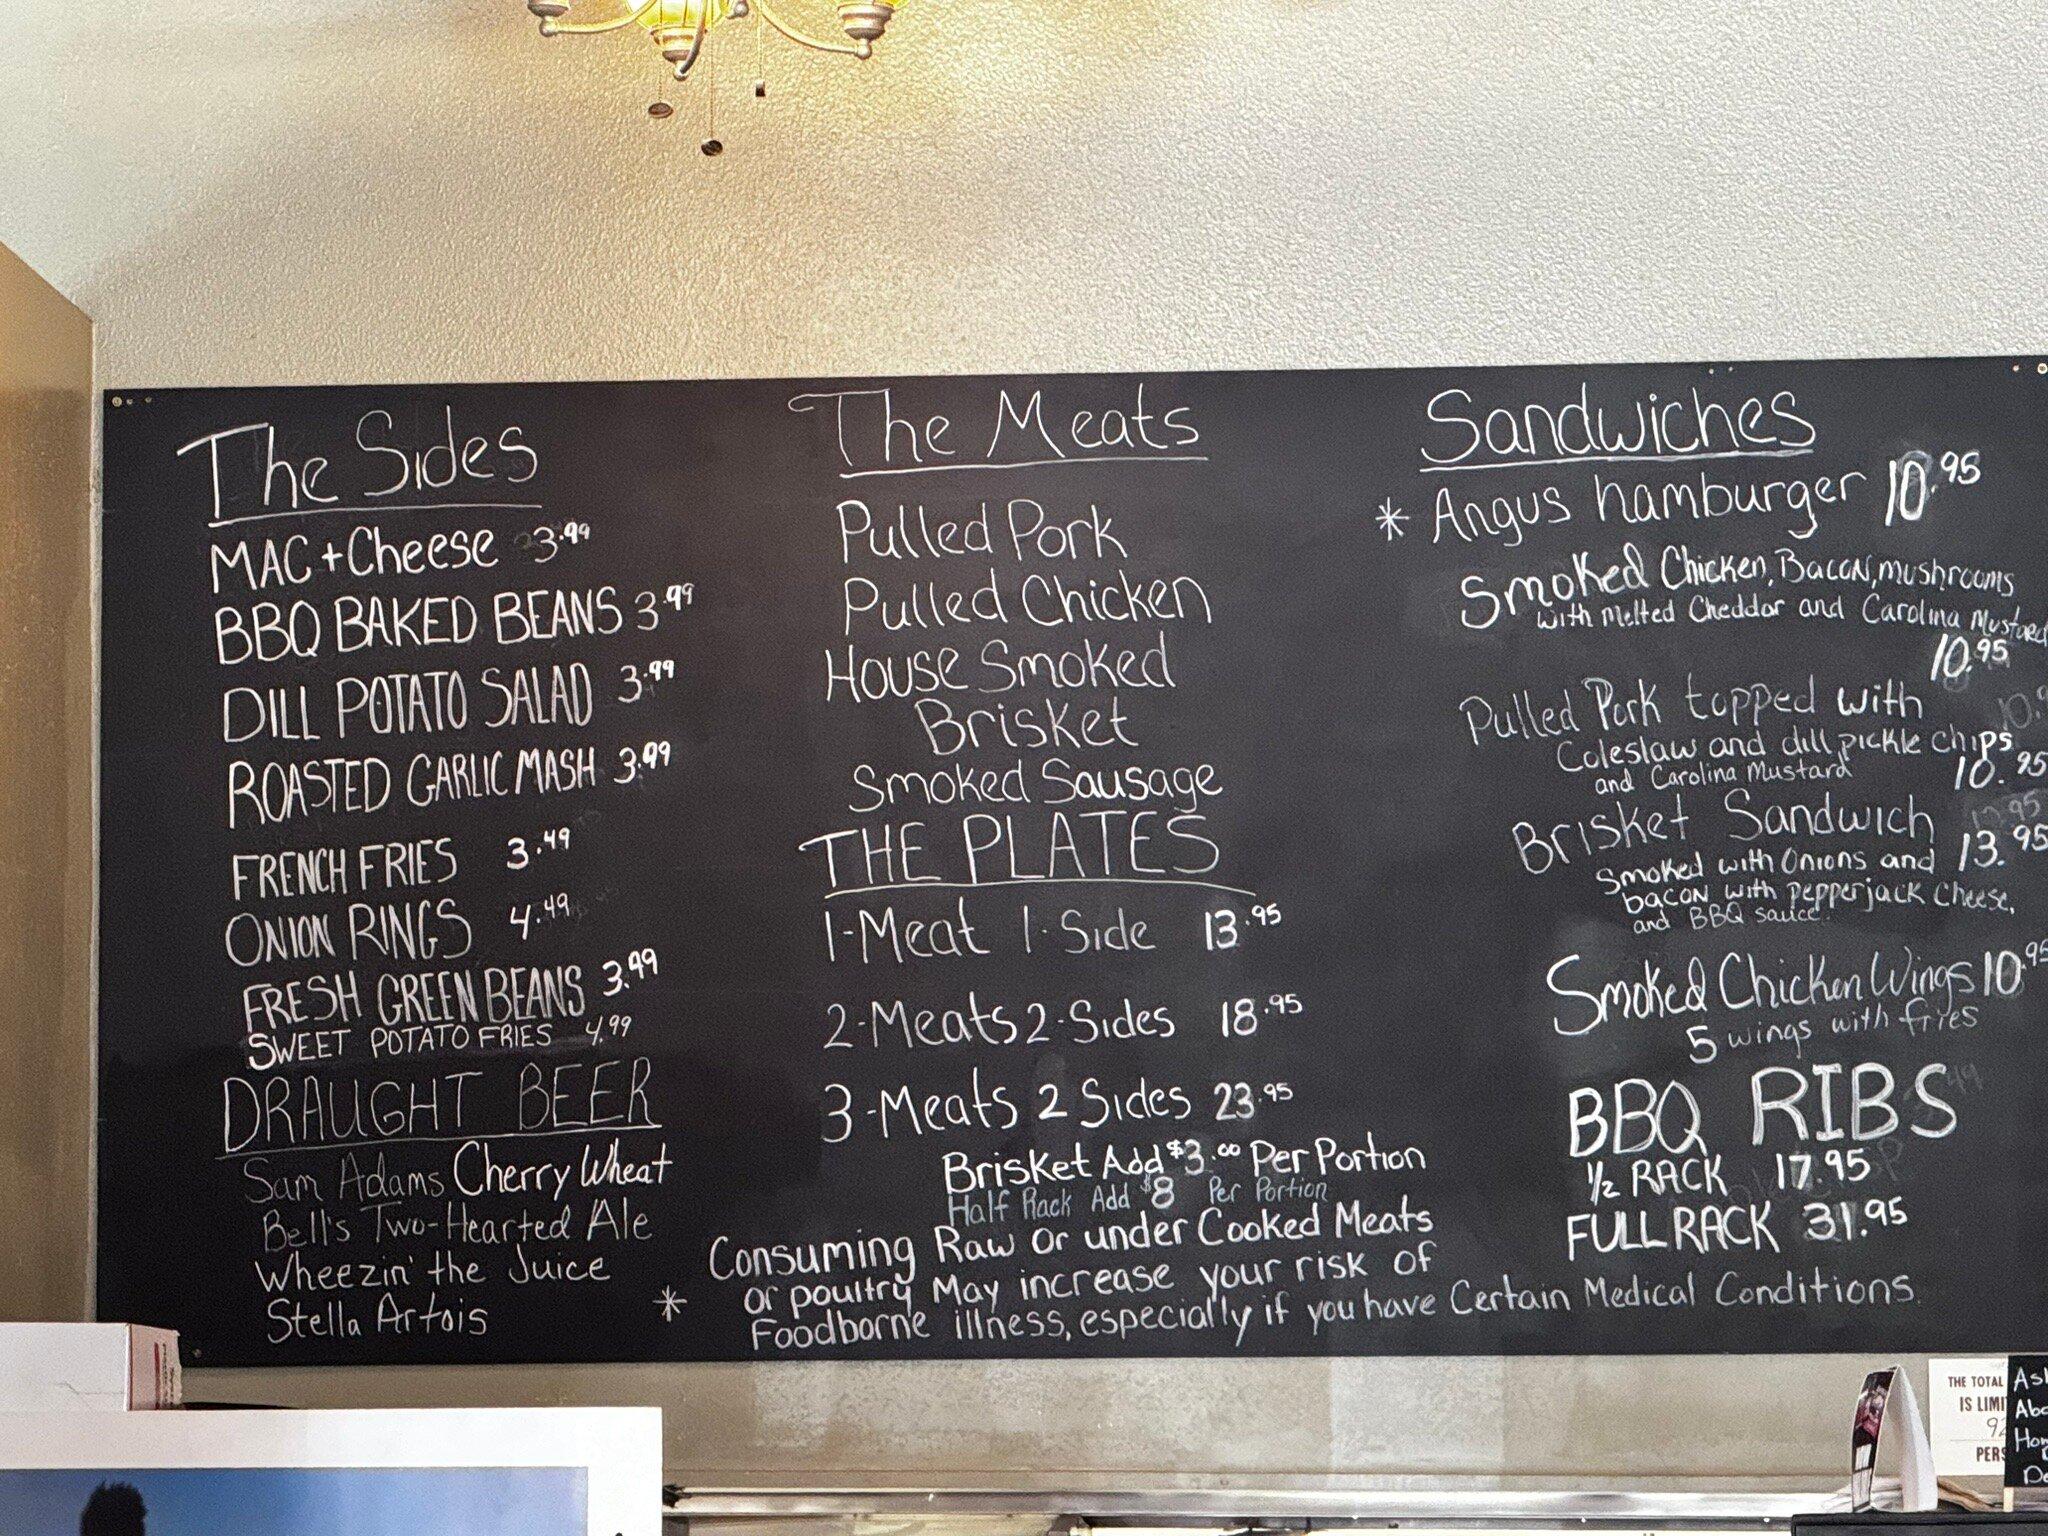 The Sides
MAC + Cheese 3.99
BBQ BAKED BEANS 3.99
DILL POTATO SALAD 3.99
ROASTED GARLIC MASH 3.99
FRENCH FRIES 3.49
ONION RINGS 4.49
FRESH GREEN BEANS 3.99
SWEET POTATO FRIES 4.99
DRAUGHT BEER
Sam Adams Cherry Wheat
Bell's Two-Hearted Ale
Wheezin' the Juice
Stella Artois
The Meats
Pulled Pork
Pulled Chicken
House Smoked
Brisket
Smoked Sausage
THE PLATES
1-Meat 1-Side 13.95
2-Meats 2-Sides 18.95
3-Meats 2 Sides 23.95
Brisket Add $3.00 Per Portion
Half Rack Add $8 Per Portion
Consuming Raw or under Cooked Meats
or poultry May increase your risk of
* Foodborne illness, especially if you have Certain Medical Conditions.
Sandwiches
* Angus hamburger 10.95
Smoked Chicken, Bacon, mushrooms
with Melted Cheddar and Carolina Mustard
10.95
Pulled Pork topped with
Coleslaw and dill pickle chips
and Carolina Mustard 10.95
Brisket Sandwich 13.95
Smoked with Onions and
bacon with pepperjack Cheese,
and BBQ sauce.
Smoked Chicken Wings 10.95
5 wings with fries
BBQ RIBS
1/2 RACK 17.95
FULL RACK 31.95
THE TOTAL
IS